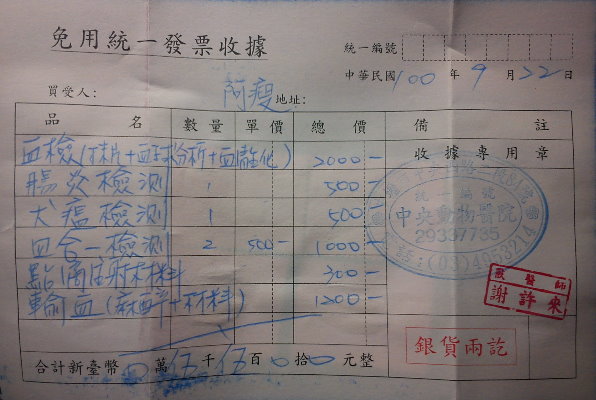 免用統一發票收據
統一編號
中華民國100年9月22日
買受人：阿瘦 地址：
品名 數量 單價 總價 備註
血檢(抹片+血球分析+血液生化) 2000-
腸炎檢測 1 500-
犬瘟檢測 1 500-
四合一檢測 2 500- 1000-
點滴注射材料 300-
輸血(麻醉+材料) 1200-
收據專用章
統一編號
中央動物醫院
29337735
電話:(03)4933214
獸醫師
謝許來
銀貨兩訖
合計新臺幣0萬伍千伍百0拾0元整